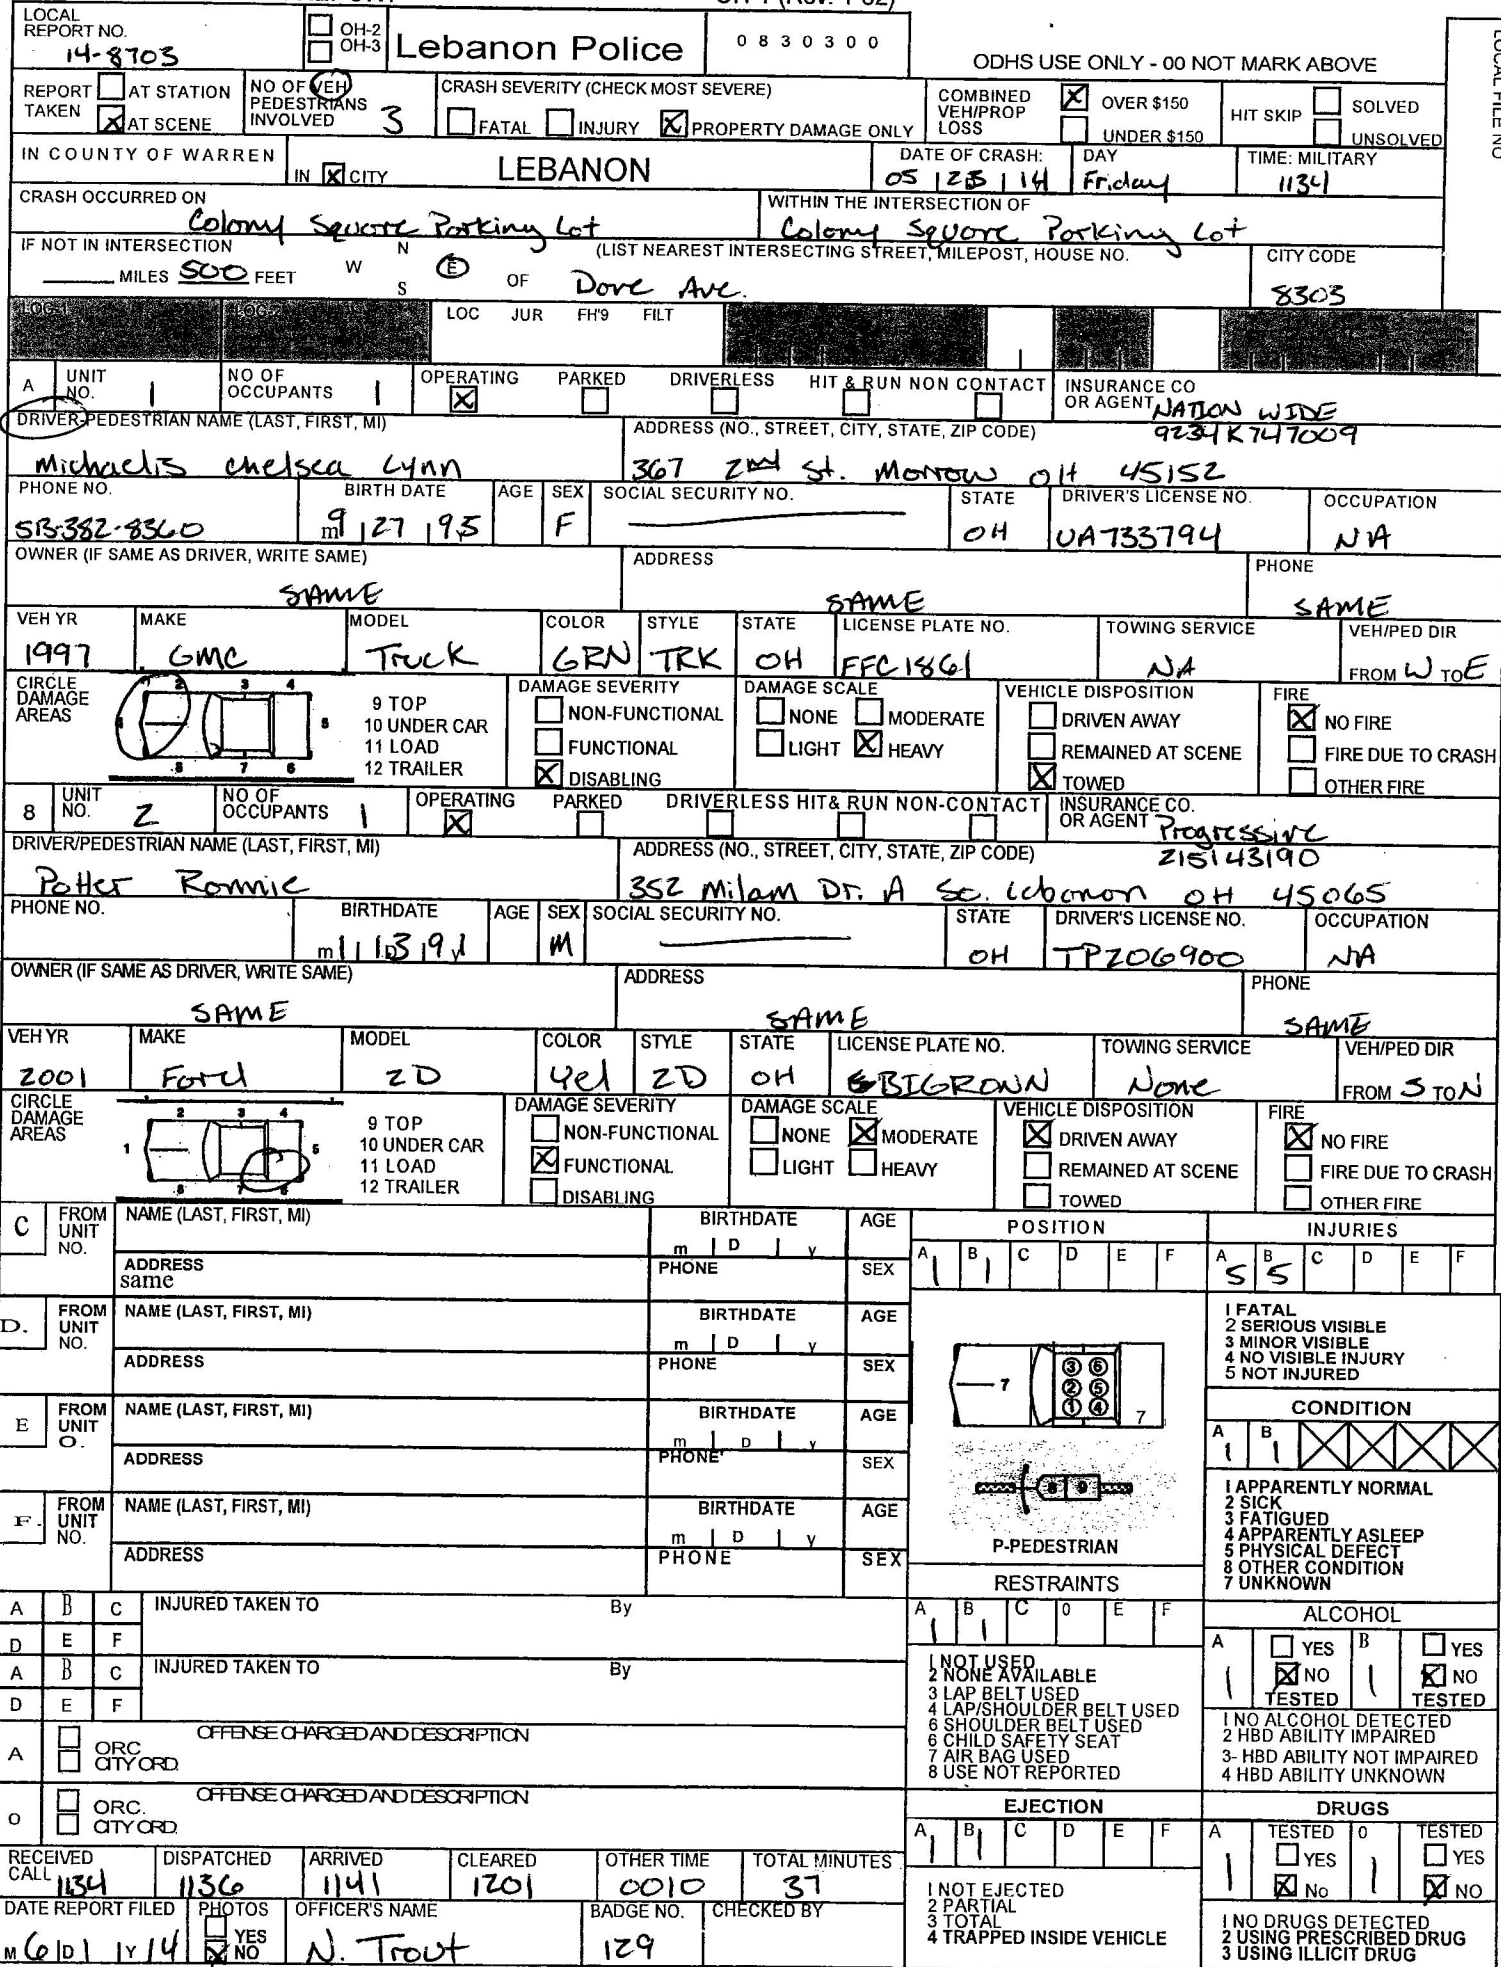 OH-1 (Rev. 1-82)
LOCAL REPORT NO. 14-8703
OH-2
OH-3
Lebanon Police
0 8 3 0 3 0 0
ODHS USE ONLY - 00 NOT MARK ABOVE
LOCAL FILE NO
REPORT TAKEN AT STATION X AT SCENE
NO OF VEH PEDESTRIANS INVOLVED 3
CRASH SEVERITY (CHECK MOST SEVERE)
FATAL INJURY X PROPERTY DAMAGE ONLY
COMBINED VEH/PROP LOSS X OVER $150 UNDER $150
HIT SKIP SOLVED UNSOLVED
IN COUNTY OF WARREN IN X CITY LEBANON
DATE OF CRASH: 05 | 23 | 14
DAY Friday
TIME: MILITARY 1134
CRASH OCCURRED ON Colony Square Parking Lot
WITHIN THE INTERSECTION OF Colony Square Parking Lot
IF NOT IN INTERSECTION
MILES 500 FEET N W E S OF Dove Ave.
(LIST NEAREST INTERSECTING STREET, MILEPOST, HOUSE NO.
CITY CODE 8303
LOC-1 LOC-2 LOC JUR FH'9 FILT
A UNIT NO. 1 NO OF OCCUPANTS 1
OPERATING X PARKED DRIVERLESS HIT & RUN NON CONTACT
INSURANCE CO OR AGENT NATION WIDE
9234K747009
DRIVER-PEDESTRIAN NAME (LAST, FIRST, MI) Michaelis Chelsea Lynn
ADDRESS (NO., STREET, CITY, STATE, ZIP CODE) 367 2nd St. Morrow OH 45152
PHONE NO. 513-382-8360
BIRTH DATE m 9 | 27 | 95
AGE SEX F
SOCIAL SECURITY NO.
STATE OH
DRIVER'S LICENSE NO. UA733794
OCCUPATION NA
OWNER (IF SAME AS DRIVER, WRITE SAME) SAME
ADDRESS SAME
PHONE SAME
VEH YR 1997 MAKE GMC MODEL Truck COLOR GRN STYLE TRK STATE OH LICENSE PLATE NO. FFC1861 TOWING SERVICE NA VEH/PED DIR FROM W TO E
CIRCLE DAMAGE AREAS
2 3 4 5 8 7 6
9 TOP
10 UNDER CAR
11 LOAD
12 TRAILER
DAMAGE SEVERITY NON-FUNCTIONAL FUNCTIONAL X DISABLING
DAMAGE SCALE NONE MODERATE LIGHT X HEAVY
VEHICLE DISPOSITION DRIVEN AWAY REMAINED AT SCENE X TOWED
FIRE X NO FIRE FIRE DUE TO CRASH OTHER FIRE
8 UNIT NO. 2 NO OF OCCUPANTS 1
OPERATING X PARKED DRIVERLESS HIT& RUN NON-CONTACT
INSURANCE CO. OR AGENT Progressive
215143190
DRIVER/PEDESTRIAN NAME (LAST, FIRST, MI) Potter Ronnie
ADDRESS (NO., STREET, CITY, STATE, ZIP CODE) 352 Milam Dr. A So. Lebanon OH 45065
PHONE NO.
BIRTHDATE
AGE SEX M
SOCIAL SECURITY NO.
STATE OH
DRIVER'S LICENSE NO. TP206900
OCCUPATION NA
OWNER (IF SAME AS DRIVER, WRITE SAME) SAME
ADDRESS SAME
PHONE SAME
VEH YR 2001 MAKE Ford MODEL 2D COLOR Yel STYLE 2D STATE OH LICENSE PLATE NO. BIGRONN TOWING SERVICE None VEH/PED DIR FROM S TO N
CIRCLE DAMAGE AREAS
1 2 3 4 5 8 7 6
9 TOP
10 UNDER CAR
11 LOAD
12 TRAILER
DAMAGE SEVERITY NON-FUNCTIONAL X FUNCTIONAL DISABLING
DAMAGE SCALE NONE X MODERATE LIGHT HEAVY
VEHICLE DISPOSITION X DRIVEN AWAY REMAINED AT SCENE TOWED
FIRE X NO FIRE FIRE DUE TO CRASH OTHER FIRE
C FROM UNIT NO. NAME (LAST, FIRST, MI) BIRTHDATE m D y AGE
ADDRESS same PHONE SEX
D. FROM UNIT NO. NAME (LAST, FIRST, MI) BIRTHDATE m D y AGE
ADDRESS PHONE SEX
E FROM UNIT O. NAME (LAST, FIRST, MI) BIRTHDATE m D y AGE
ADDRESS PHONE SEX
F. FROM UNIT NO. NAME (LAST, FIRST, MI) BIRTHDATE m D y AGE
ADDRESS PHONE SEX
POSITION
A 1 B 1 C D E F
3 6 2 5 1 4 7 7
8 9
P-PEDESTRIAN
INJURIES
A 5 B 5 C D E F
I FATAL
2 SERIOUS VISIBLE
3 MINOR VISIBLE
4 NO VISIBLE INJURY
5 NOT INJURED
CONDITION
A 1 B 1
I APPARENTLY NORMAL
2 SICK
3 FATIGUED
4 APPARENTLY ASLEEP
5 PHYSICAL DEFECT
8 OTHER CONDITION
7 UNKNOWN
A B C INJURED TAKEN TO By
D E F
A B C INJURED TAKEN TO By
D E F
RESTRAINTS
A 1 B 1 C 0 E F
I NOT USED
2 NONE AVAILABLE
3 LAP BELT USED
4 LAP/SHOULDER BELT USED
6 SHOULDER BELT USED
6 CHILD SAFETY SEAT
7 AIR BAG USED
8 USE NOT REPORTED
ALCOHOL
A 1 YES X NO TESTED B 1 YES X NO TESTED
I NO ALCOHOL DETECTED
2 HBD ABILITY IMPAIRED
3- HBD ABILITY NOT IMPAIRED
4 HBD ABILITY UNKNOWN
A ORC CITY ORD. OFFENSE CHARGED AND DESCRIPTION
O ORC. CITY ORD. OFFENSE CHARGED AND DESCRIPTION
EJECTION
A 1 B 1 C D E F
I NOT EJECTED
2 PARTIAL
3 TOTAL
4 TRAPPED INSIDE VEHICLE
DRUGS
A 1 TESTED YES X No 0 1 TESTED YES X NO
I NO DRUGS DETECTED
2 USING PRESCRIBED DRUG
3 USING ILLICIT DRUG
RECEIVED CALL 1134 DISPATCHED 1136 ARRIVED 1141 CLEARED 1201 OTHER TIME 0010 TOTAL MINUTES 37
DATE REPORT FILED M 6 | D 1 | Y 14 PHOTOS YES X NO OFFICER'S NAME N. Trout BADGE NO. 129 CHECKED BY